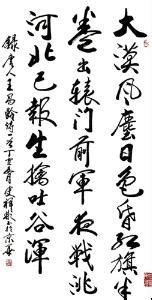 大漠风塵日色昏红旗半
卷出辕门前军夜战洮
河北已报生擒吐谷渾
録唐人王昌龄诗一首丁亥 史祥彬於京華